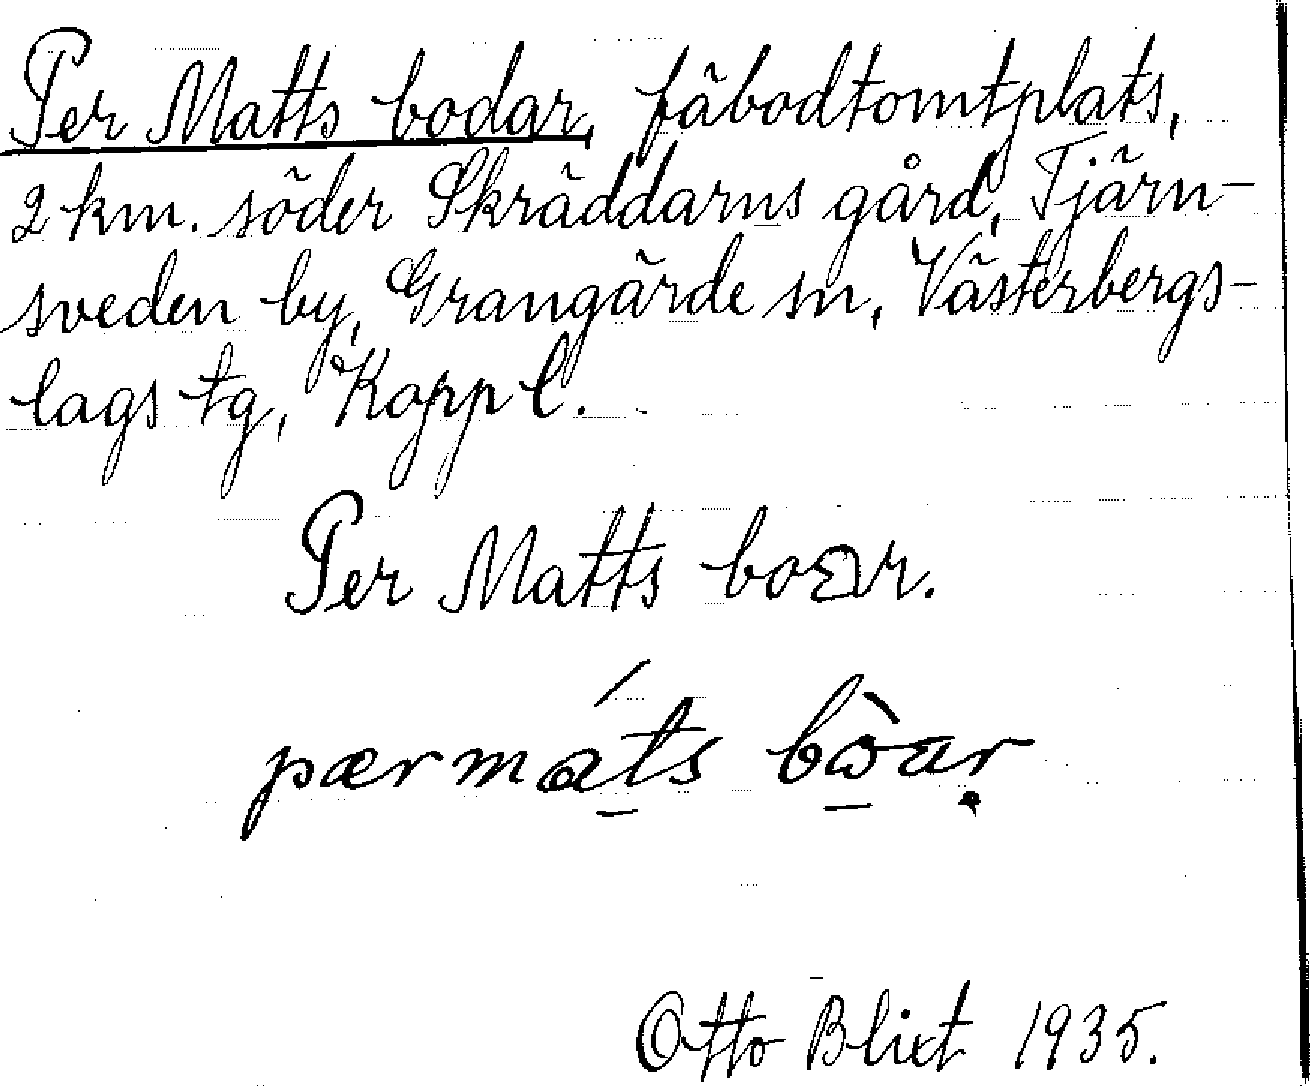 Per Matts bodar, fäbodtomtplats,
2 km. söder Skräddarns gård, Tjärn-
sveden by, Grangärde sn, Västerbergs-
lags tg, Kopp l.
Per Matts boar.
pærmáts bòar
Otto Blixt 1935.